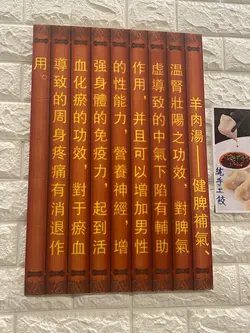 羊肉湯——健脾補氣、
溫腎壯陽之功效，對脾氣
虛導致的中氣下陷有輔助
作用，并且可以增加男性
的性能力，營養神經，增
强身體的免疫力，起到活
血化瘀的功效，對于瘀血
導致的周身疼痛有消退作
用。
手工餃